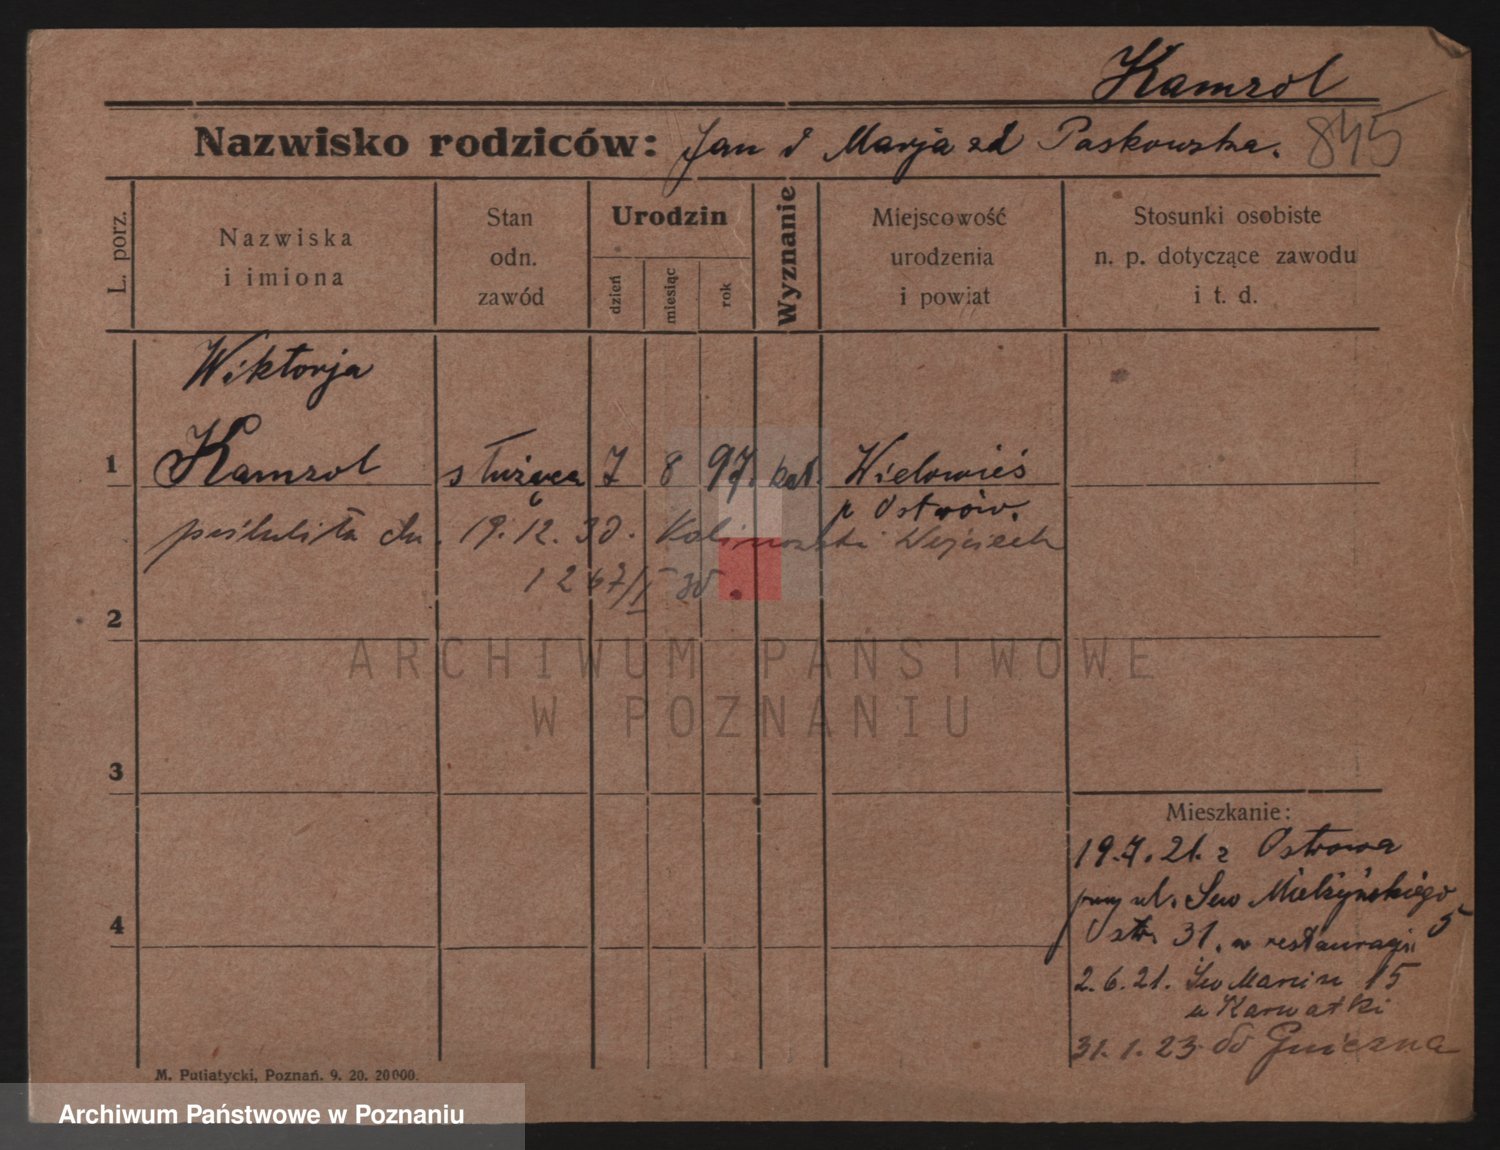 Kamzol
Nazwisko rodziców: Jan i Marja zd Paskowska. 845
L. porz.
Nazwiska
i imiona
Stan
odn.
zawód
Urodzin
dzień
miesiąc
rok
Wyznanie
Miejscowość
urodzenia
i powiat
Stosunki osobiste
n. p. dotyczące zawodu
i t. d.
Wiktorja
1 Kamzol służąca 7 8 97. kat. Wielowieś
p Ostrów.
poślubiła dn. 19.12.30. Kalinowski Wojciech
1267/I 30.
2
3
4
Mieszkanie:
19.7.21. z Ostrowa
przy ul. Sew Mielżyńskiego 5
31. w restauracji
2.6.21. Św Marcin 15
u Karwatki
31.1.23 do Gniezna
M. Putiatycki, Poznań. 9. 20. 20000.
ARCHIWUM PAŃSTWOWE
W POZNANIU
Archiwum Państwowe w Poznaniu